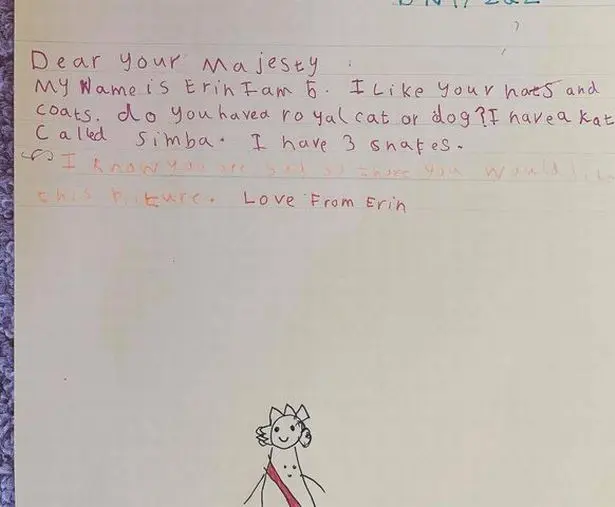 Dear your Majesty
My Name is Erin I am 5. I Like your hats and
coats. do you have a royal cat or dog? I have a kat
Called Simba. I have 3 snakes.
I know you are sad so I hope you would
this picture. Love From Erin